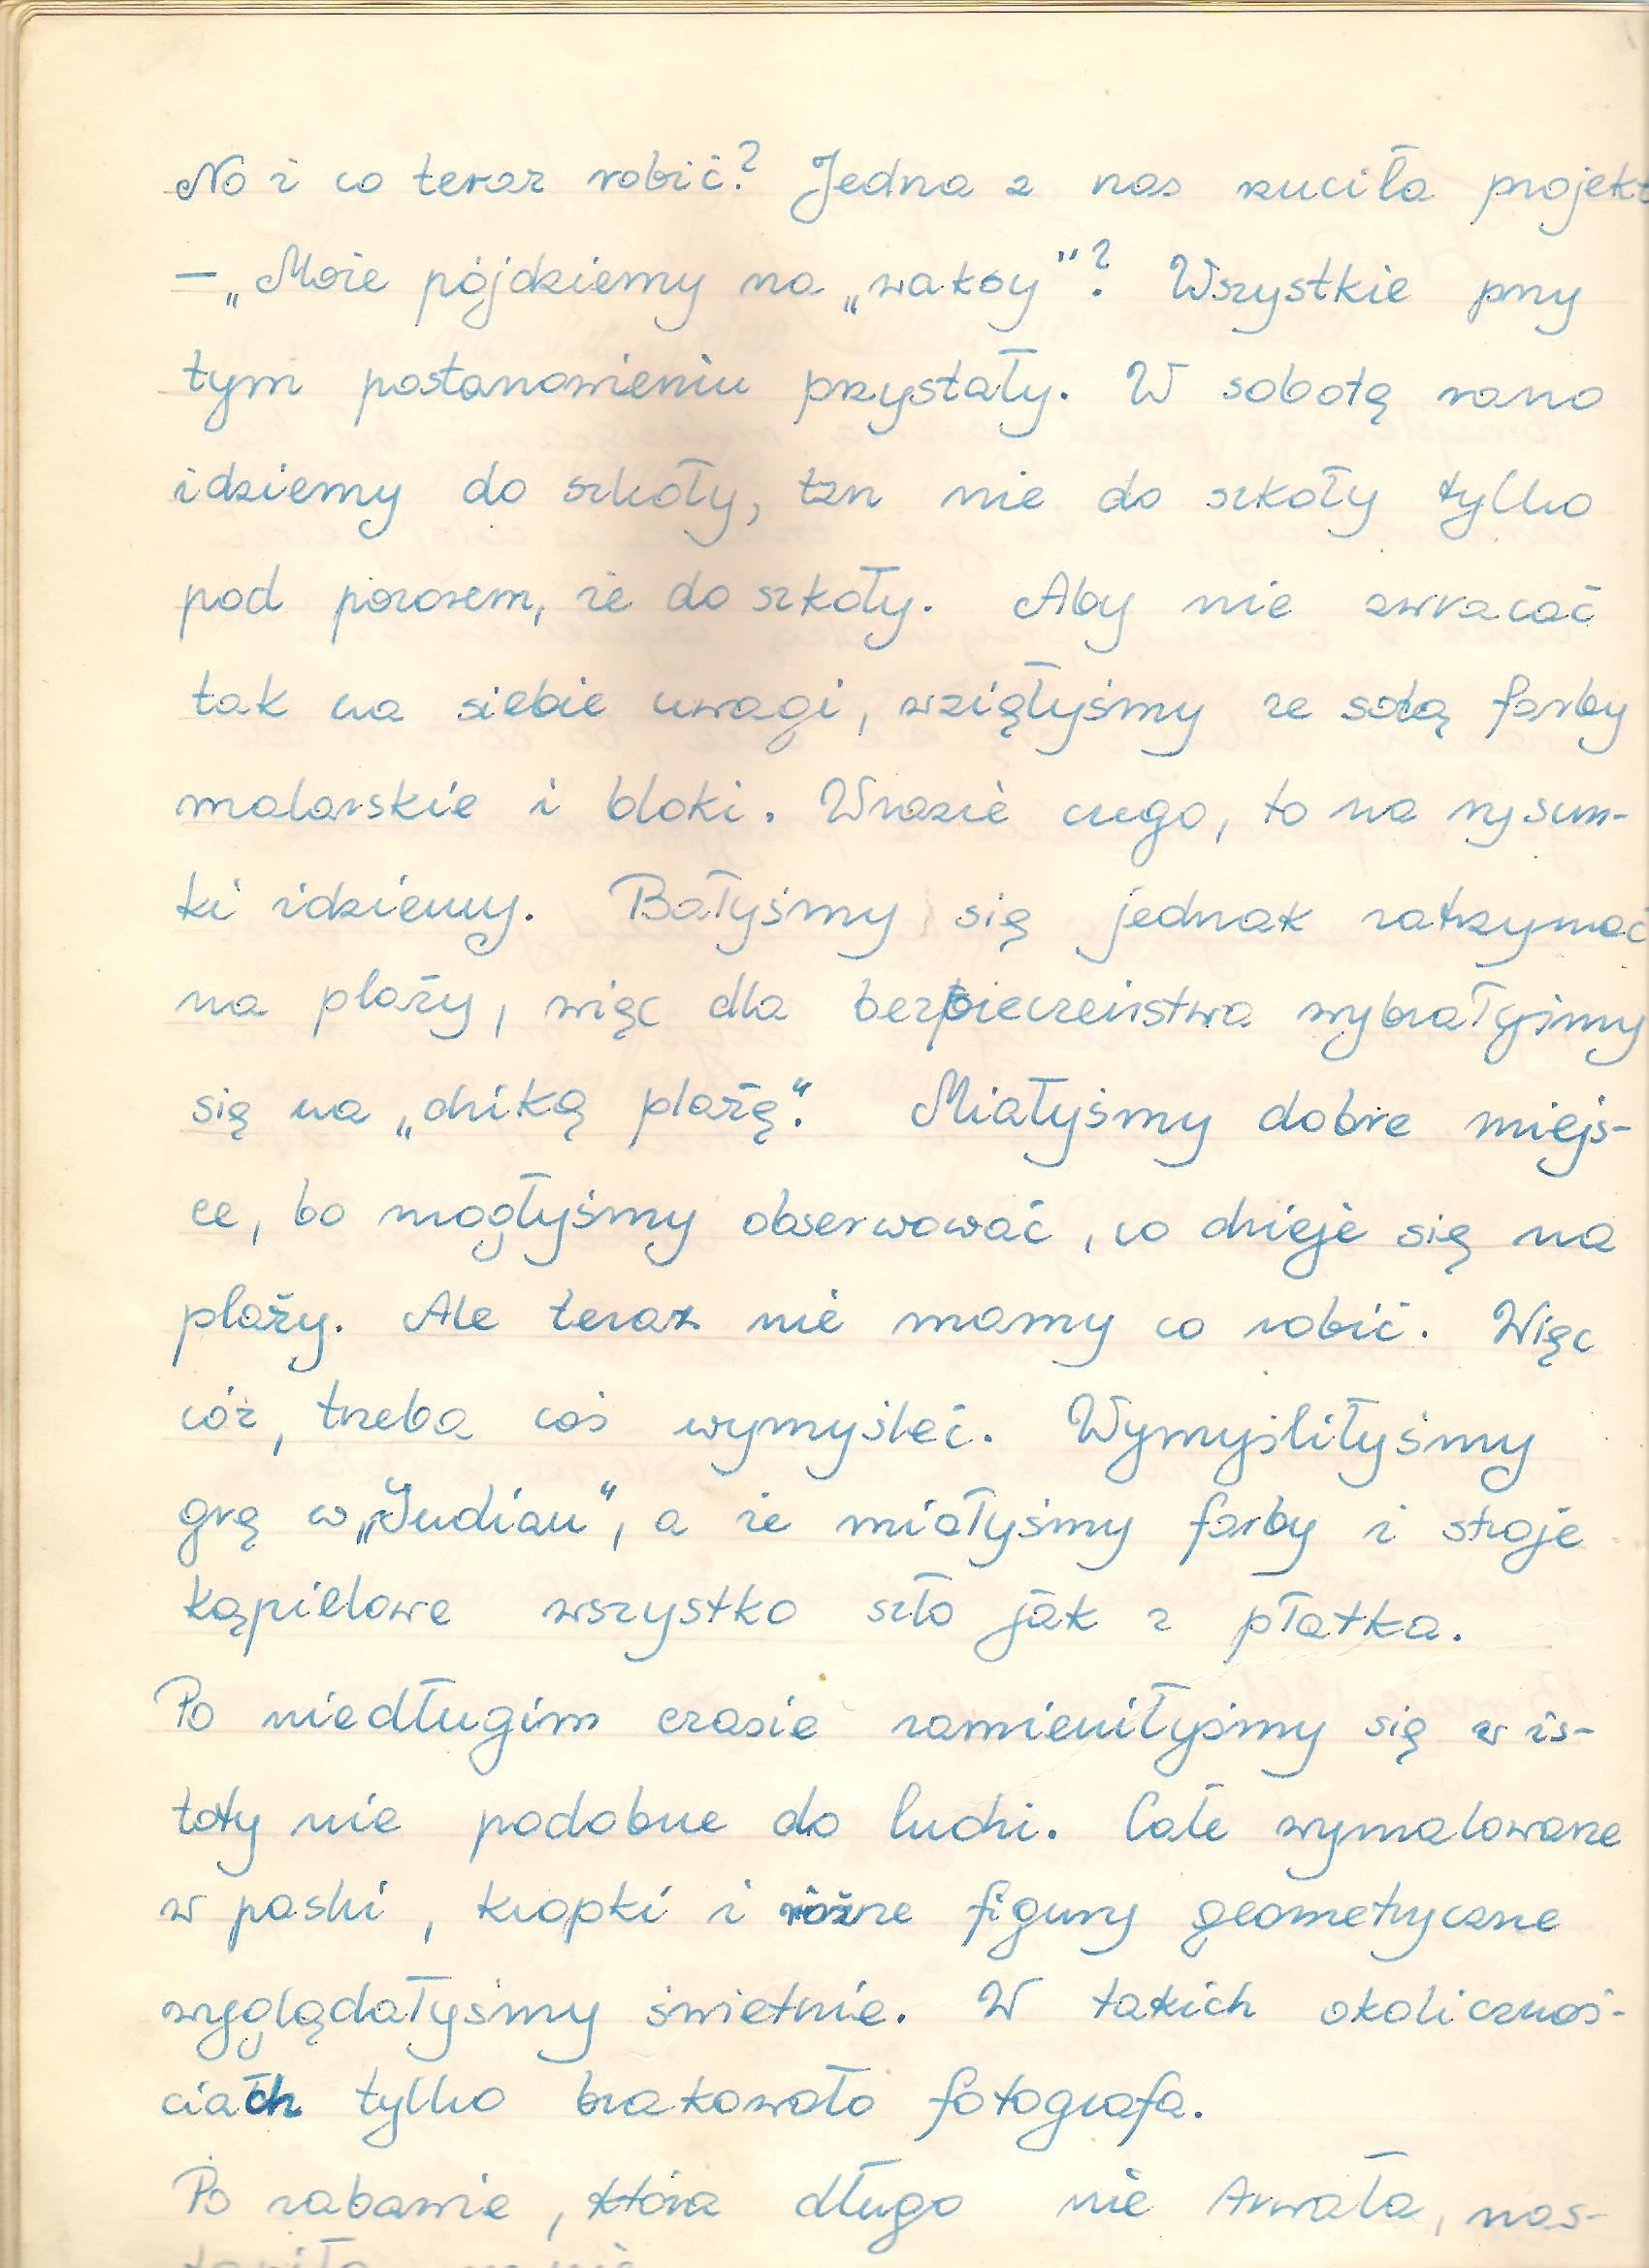 No i co teraz robić? Jedna z nas rzuciła projekt
– „Może pójdziemy na „waksy"? Wszystkie przy
tym postanowieniu przystały. W sobotę rano
idziemy do szkoły, tzn nie do szkoły tylko
pod pozorem, że do szkoły. Aby nie zwracać
tak na siebie uwagi, wzięłyśmy ze sobą farby
malarskie i bloki. Wrazie czego, to na rysun-
ki idziemy. Bałyśmy się jednak zatrzymać
na plaży, więc dla bezpieczeństwa wybrałyśmy
się na „dziką plażę". Miałyśmy dobre miejs-
ce, bo mogłyśmy obserwować, co dzieje się na
plaży. Ale teraz nie mamy co robić. Więc
cóż, trzeba coś wymyśleć. Wymyśliłyśmy
grę w „Indian", a że miałyśmy farby i stroje
kąpielowe wszystko szło jak z płatka.
Po niedługim czasie zamieniłyśmy się w is-
toty nie podobne do ludzi. Całe wymalowane
w paski, kropki i różne figury geometryczne
wyglądałyśmy świetnie. W takich okolicznoś-
ciach tylko brakowało fotografa.
Po zabawie, która długo nie trwała, nas-